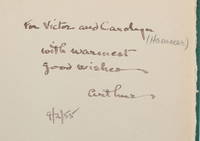 For Victor and Carolyn
(Hammer)
with warmest
good wishes
Arthur
9/2/55